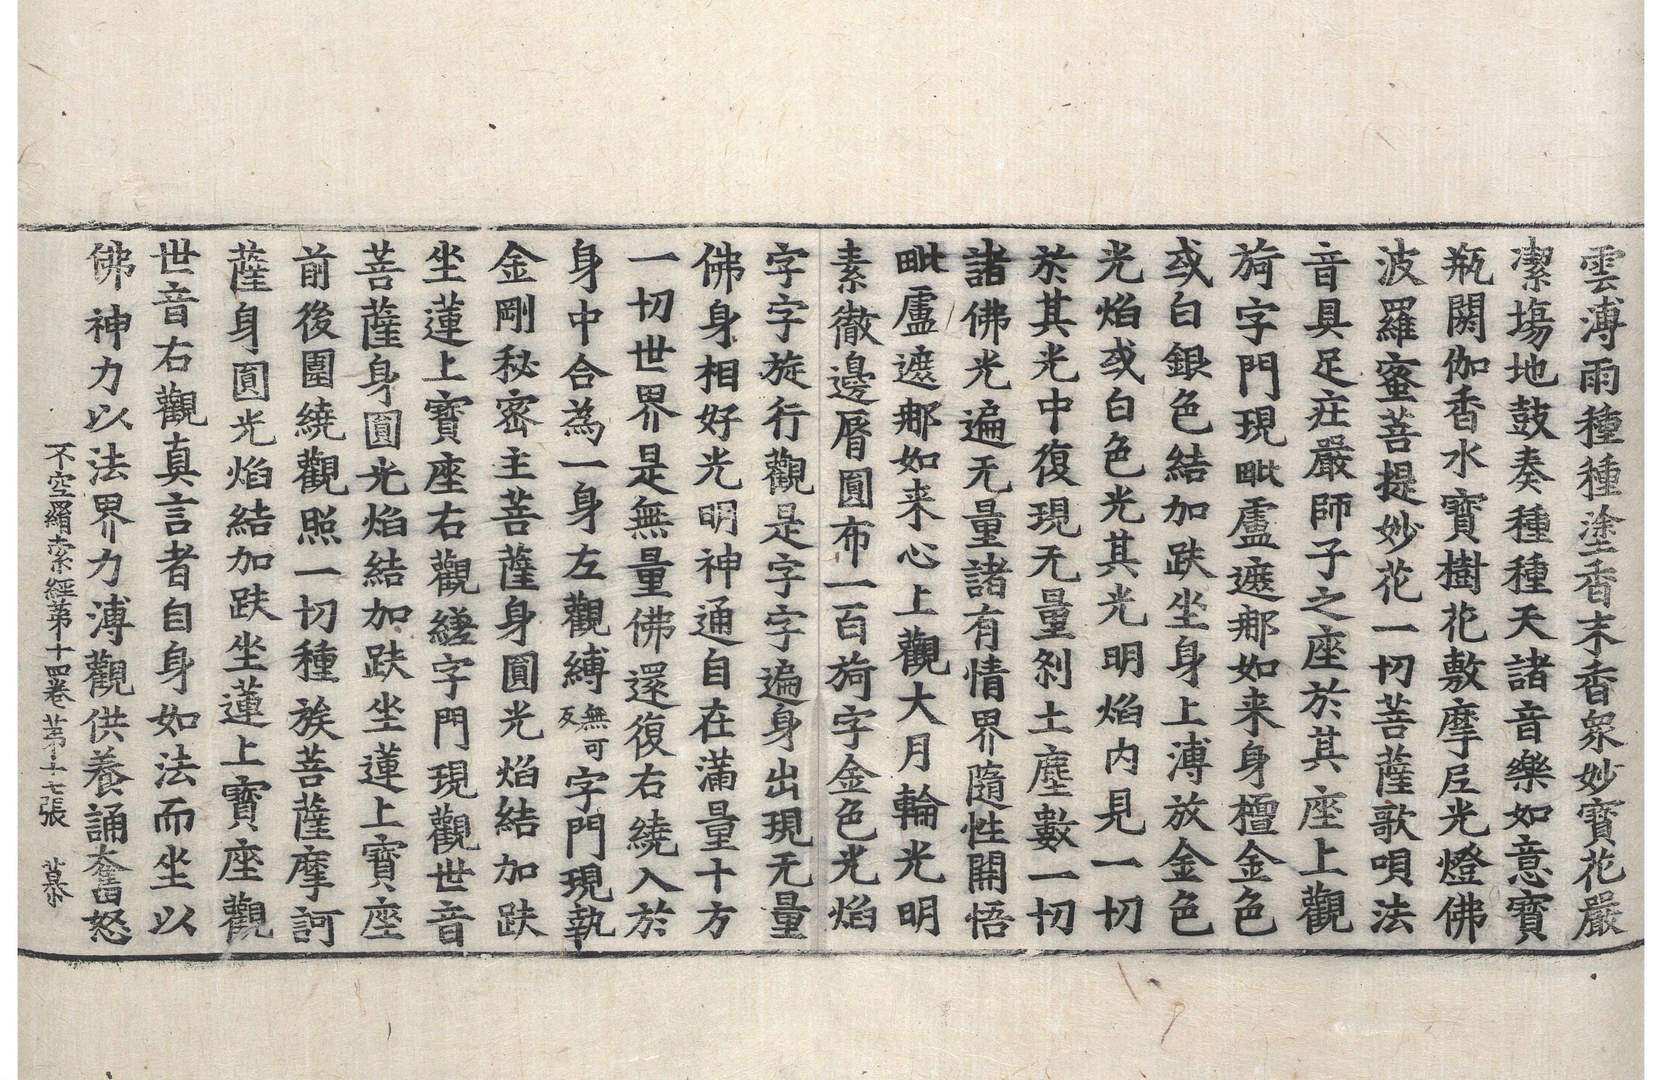 雲溥雨種種塗香末香衆妙寶花嚴
潔塲地鼓奏種種天諸音樂如意寶
瓶閼伽香水寶樹花敷摩𡰱光燈佛
波羅蜜菩提妙花一切菩薩歌唄法
音具足庄嚴師子之座於其座上觀
㫊字門現毗盧遮那如来身檀金色
或白銀色結加趺坐身上溥放金色
光焰或白色光其光明焰内見一切
於其光中復現无量刹土塵數一切
諸佛光遍无量諸有情界隨性開悟
毗盧遮那如来心上觀大月輪光明
素徹邊厝圓布一百㫊字金色光焰
字字旋行觀是字字遍身出現无量
佛身相好光明神通自在滿量十方
一切世界是無量佛還復右繞入於
身中合為一身左觀縛無可反字門現執
金剛秘密主菩薩身圓光焰結加趺
坐蓮上寶座右觀縒字門現觀世音
菩薩身圓光焰結加趺坐蓮上寶座
前後圍繞觀照一切種族菩薩摩訶
薩身圓光焰結加趺坐蓮上寶座觀
世音右觀真言者自身如法而坐以
佛神力以法界力溥觀供養誦奮怒
不空羂索經苐十四卷 苐十七張 慕